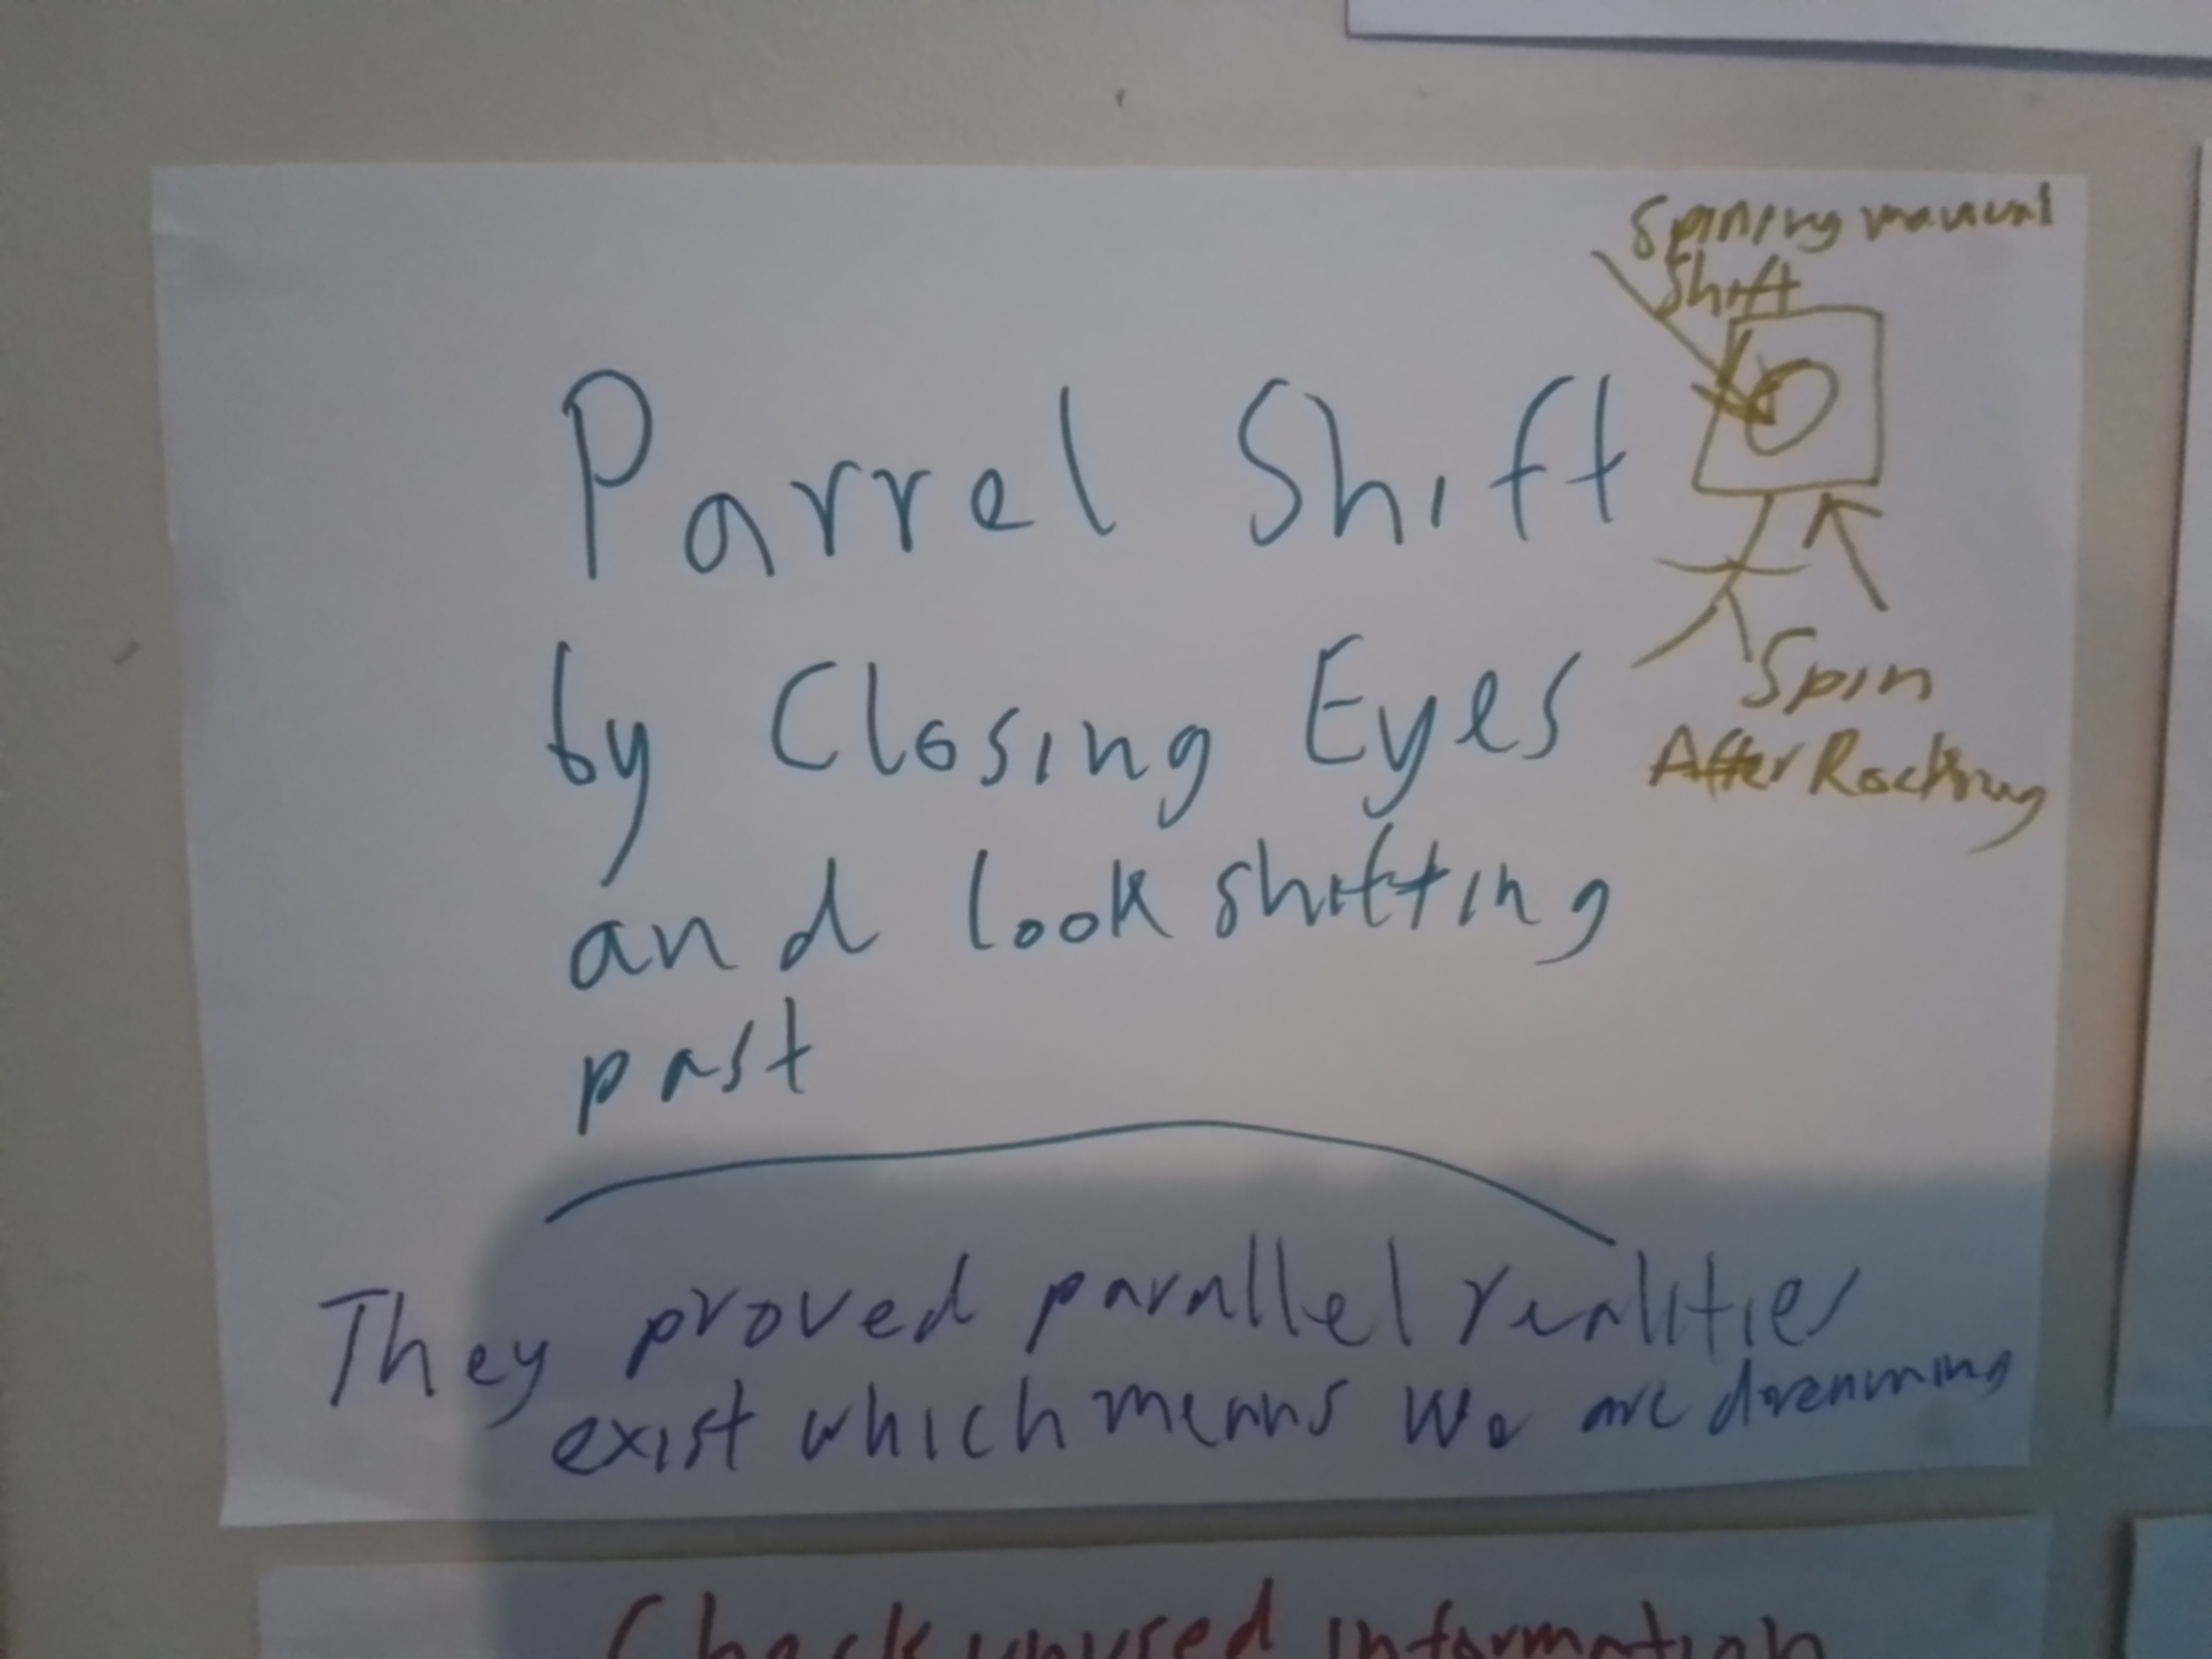 Spining manual
Shift
Parrel Shift
by Closing Eyes
and look shifting
past
Spin
After Rocking
They proved parallel realities
exist which means we are dreamming
Check unused information